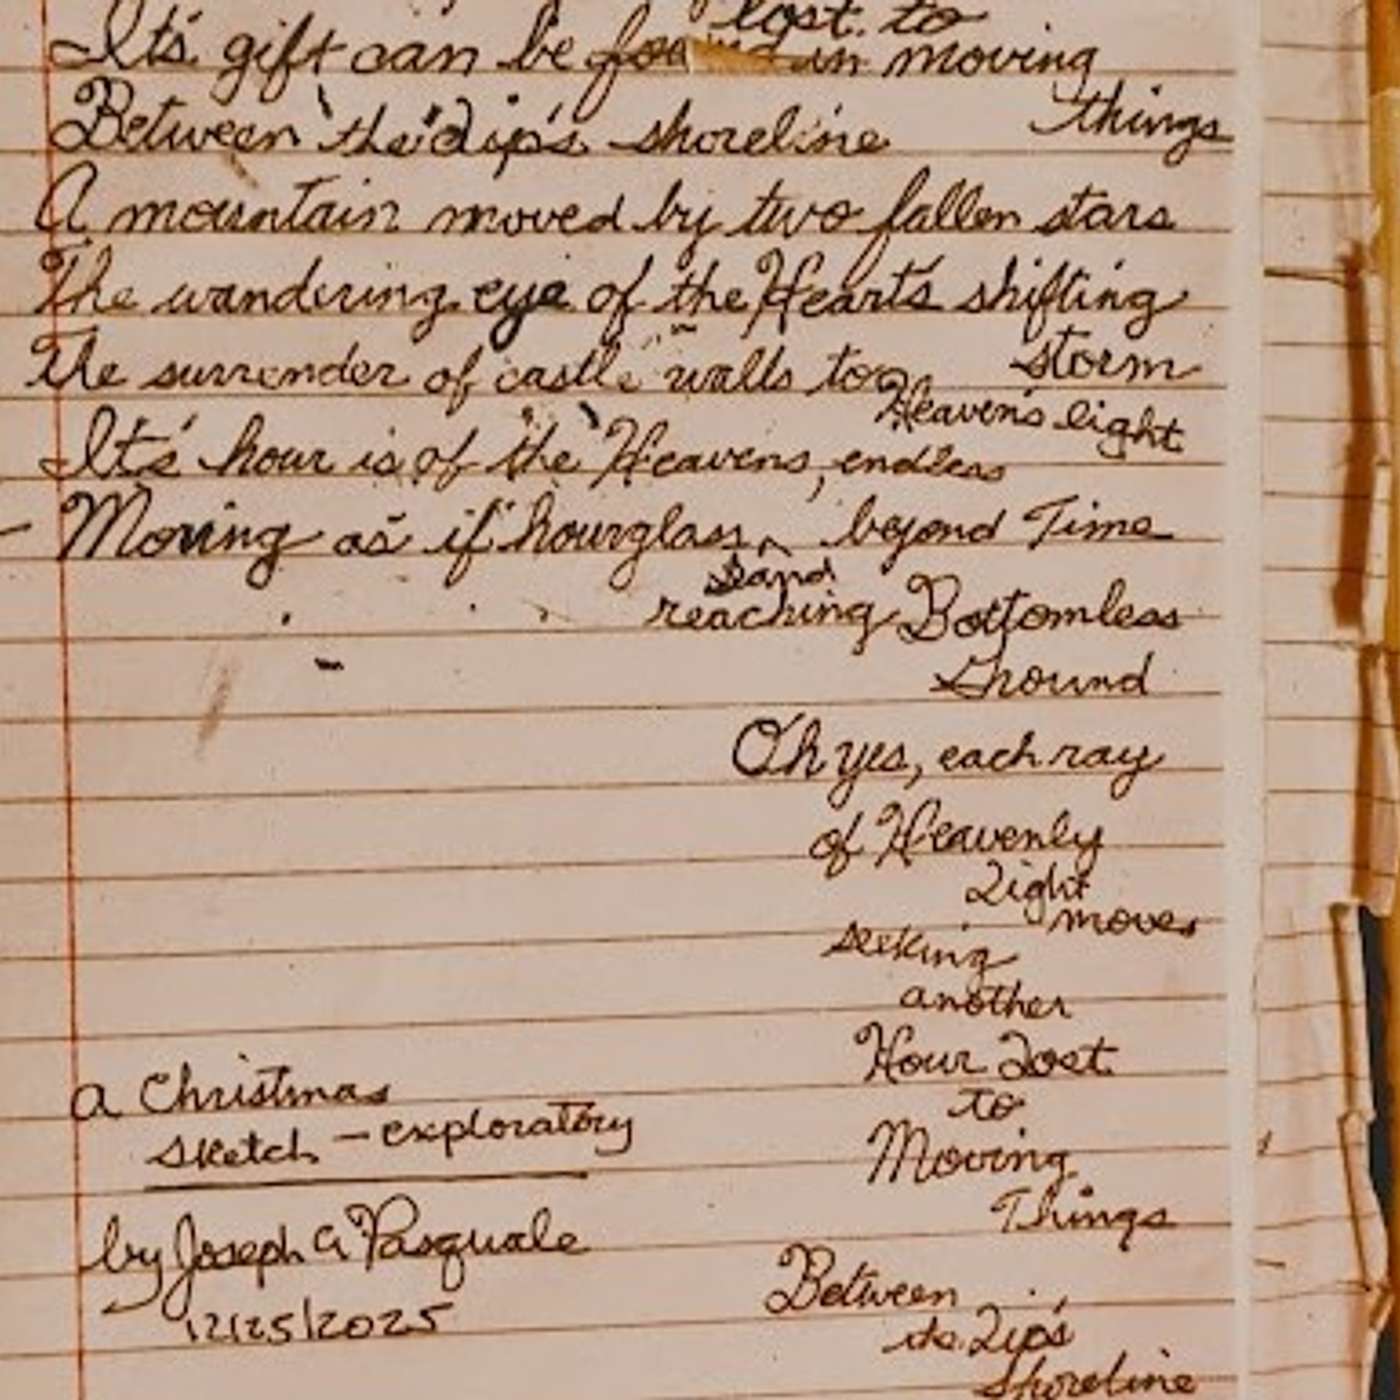 lost to
It's gift can be found in moving
things
Between the lip's shoreline
A mountain moved by two fallen stars
The wandering eye of the Heart's shifting
storm
The surrender of castle walls to
Heaven's light
It's hour is of the Heavens, endless
Moving as if hourglass beyond Time
sand
reaching Bottomless
Ground
Oh yes, each ray
of Heavenly
Light
moves
seeking
another
Hour Lost
to
Moving
Things
Between
the Lip's
Shoreline
a Christmas
sketch - exploratory
by Joseph A Pasquale
12/25/2025